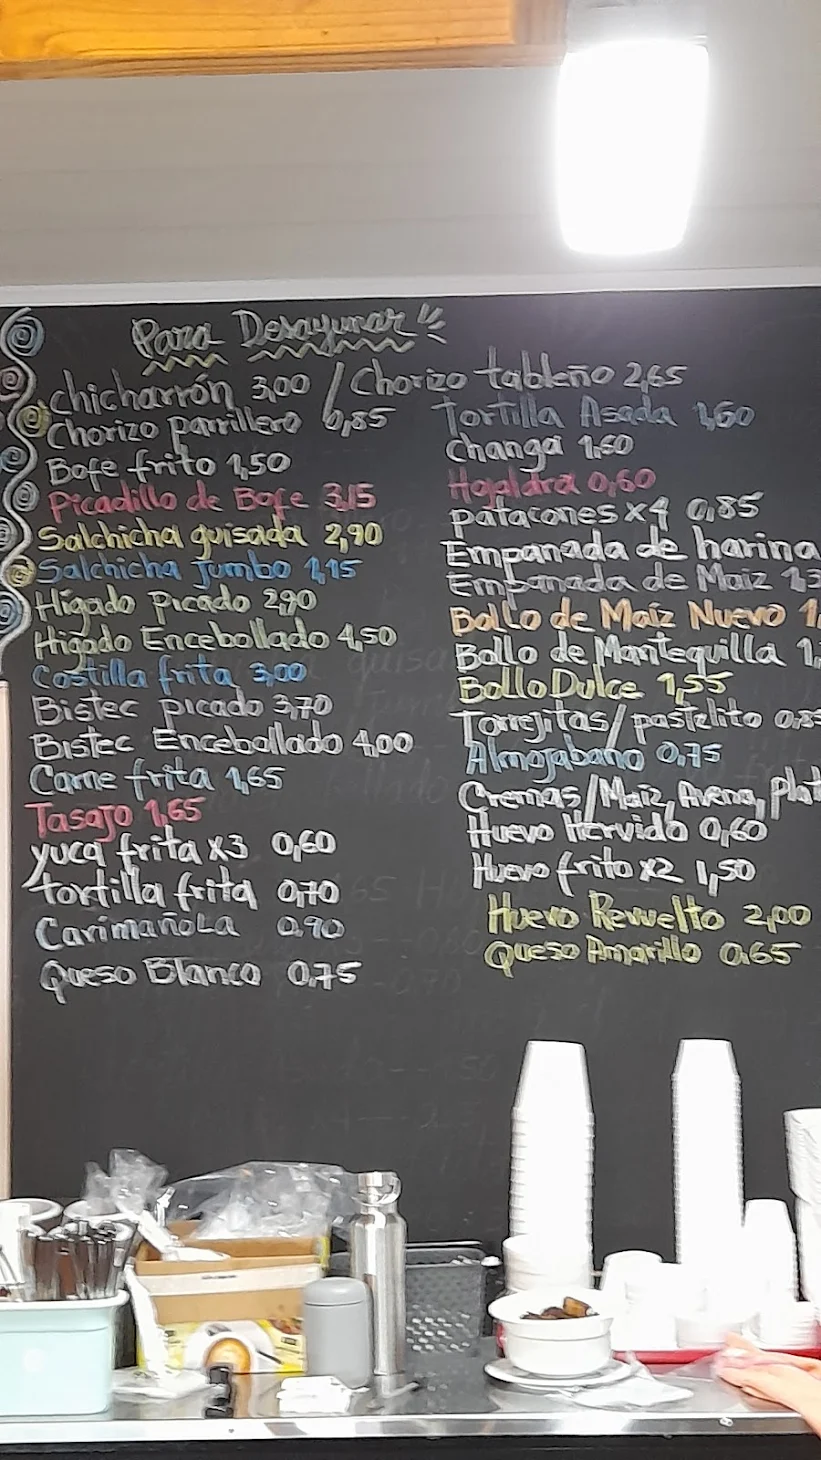 Para Desayunar"
chicharrón 3,00 / Chorizo tableño 2,65
Chorizo parrillero 0,85
Bofe frito 1,50
Picadillo de Bofe 3,15
Salchicha guisada 2,90
Salchicha Jumbo 1,15
Hígado picado 2,90
Higado Encebollado 4,50
Costilla frita 3,00
Bistec picado 3,70
Bistec Encebollado 4,00
Carne frita 1,65
Tasajo 1,65
yuca frita x3 0,60
tortilla frita 0,70
Carimañola 0,90
Queso Blanco 0,75
Tortilla Asada 1,60
Changa 1,60
Hojaldra 0,60
patacones x4 0,85
Empanada de harina
Empanada de Maiz 1,3
Bollo de Maíz Nuevo 1,
Bollo de Mantequilla 1,
Bollo Dulce 1,55
Torrejitas/pastelito 0,85
Almojabano 0,75
Cremas/Maiz, Avena, Plat
Huevo Hervido 0,60
Huevo frito x2 1,50
Huevo Revuelto 2,00
Queso Amarillo 0,65